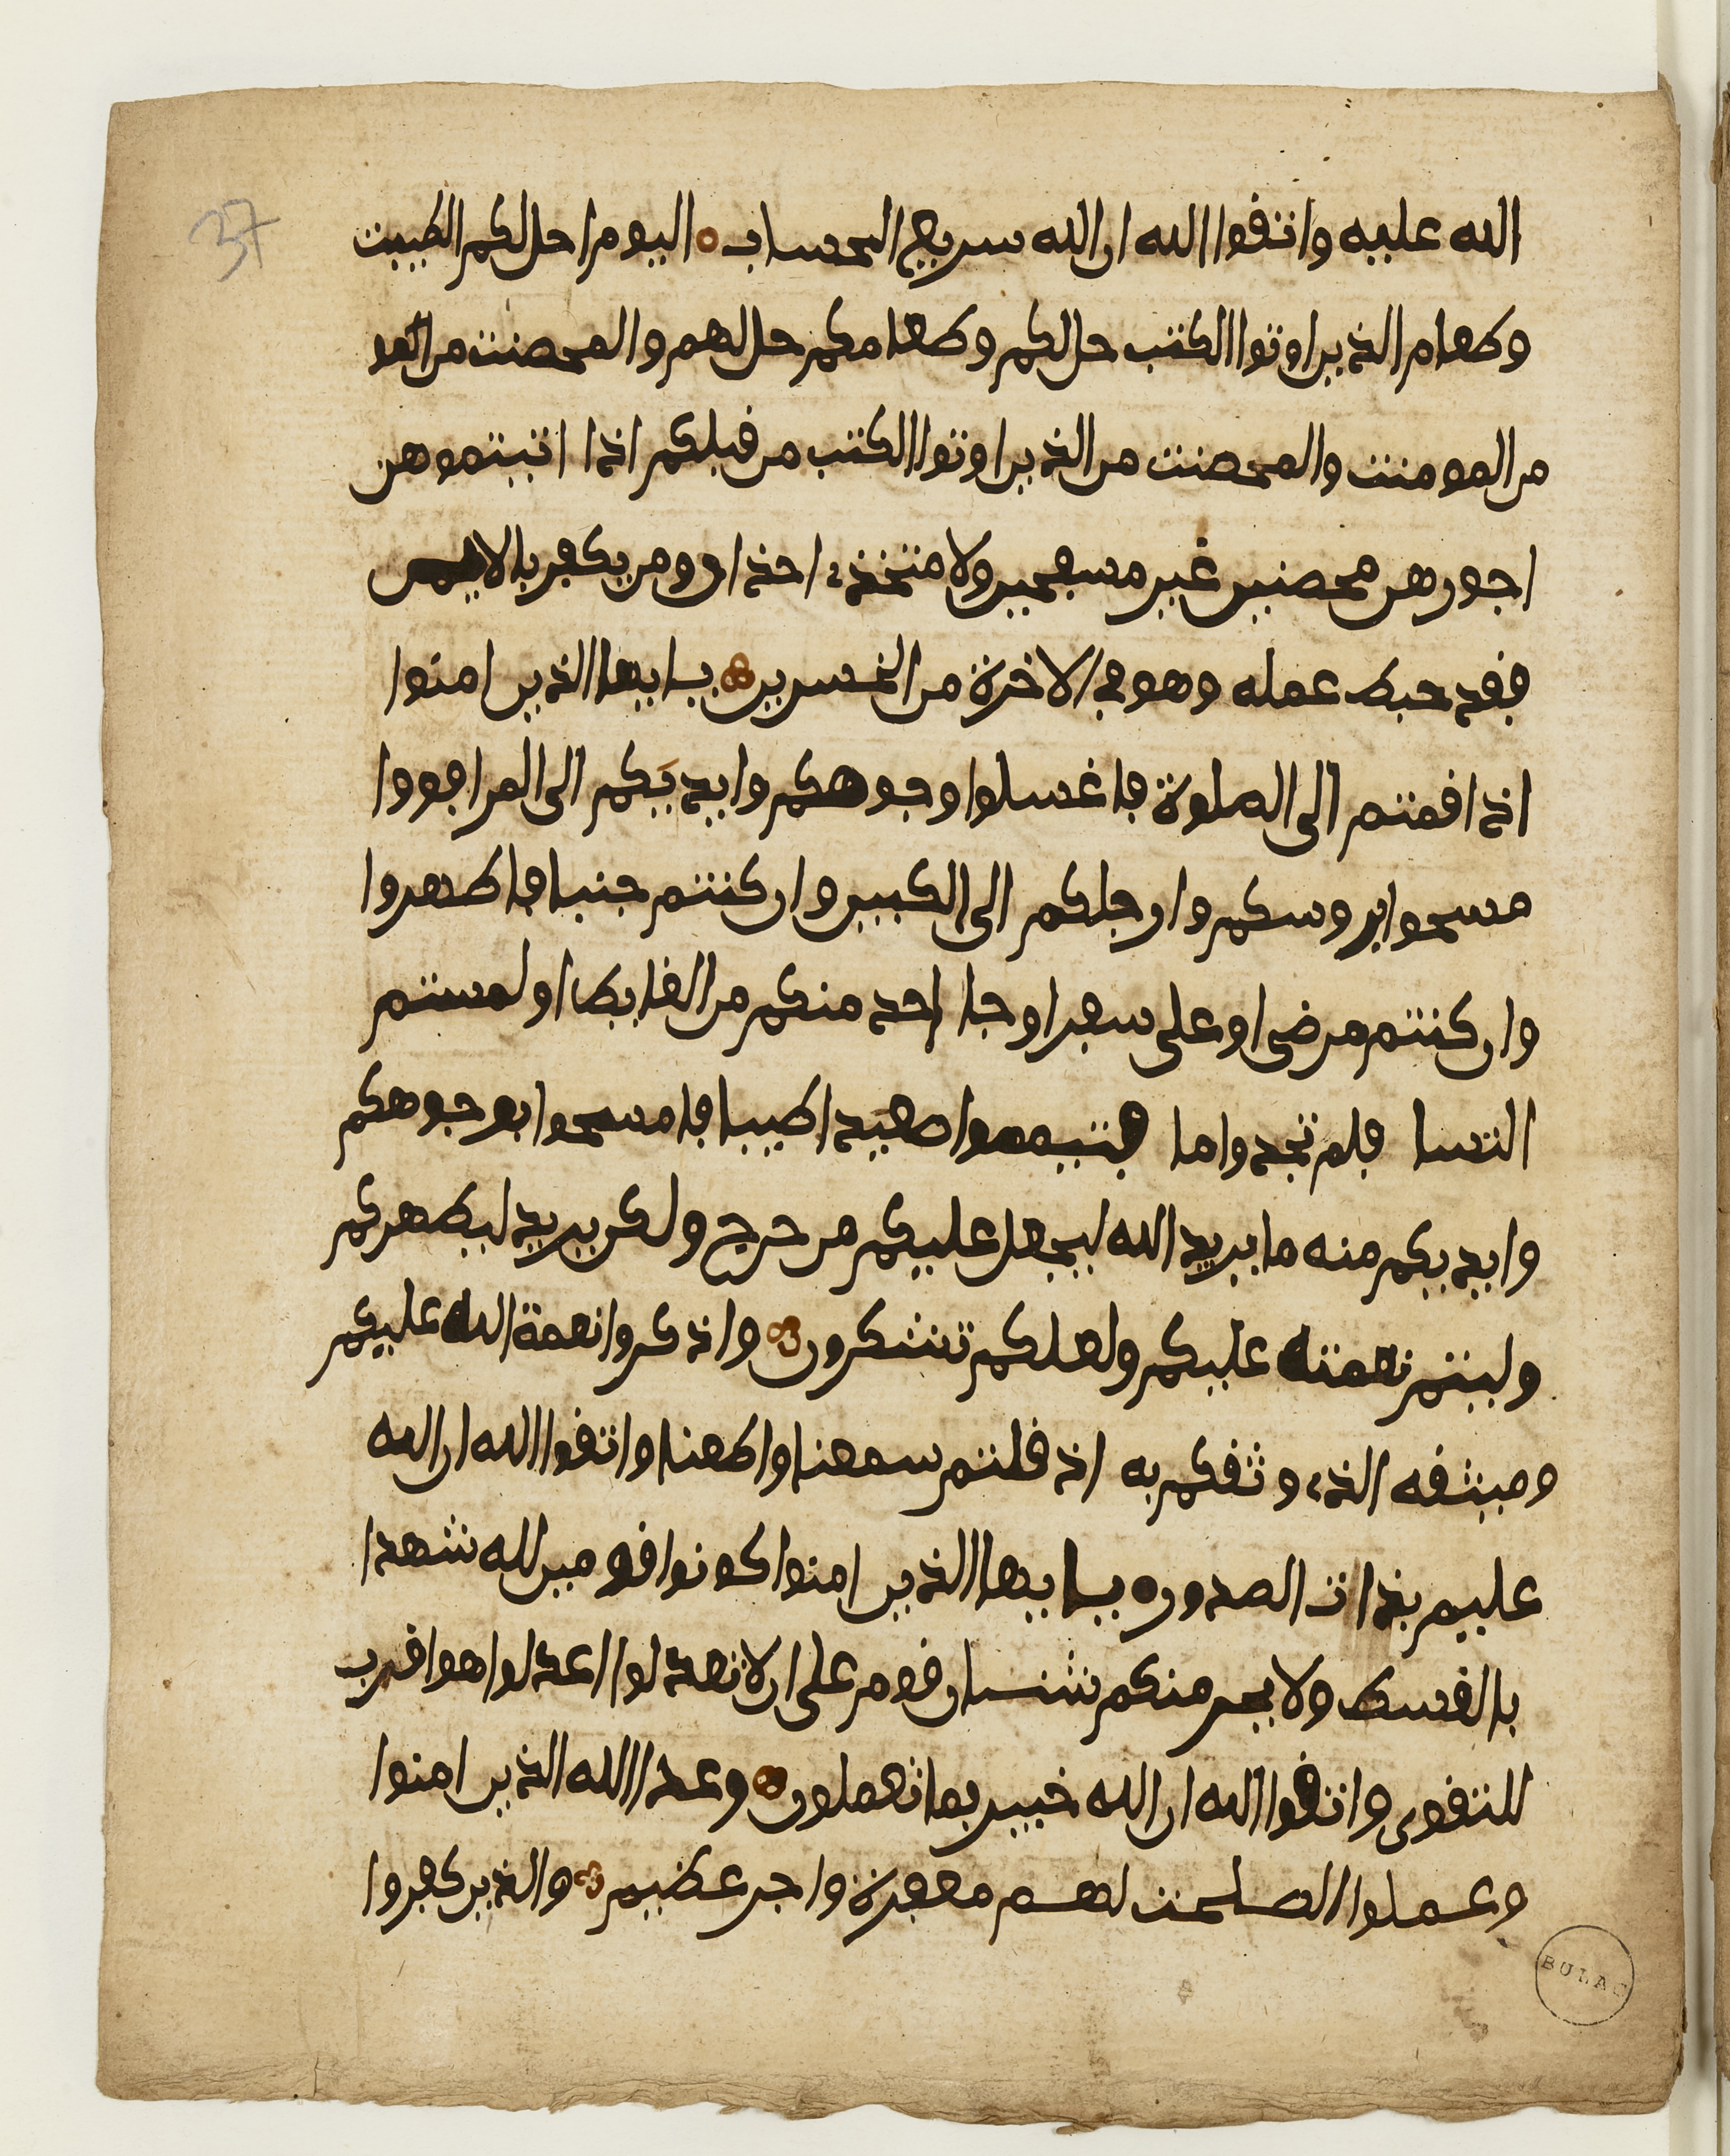 37
الله عليه واتقوا الله ان الله سريع الحساب اليوم احل لكم الطيبت
وطعام الذين اوتوا الكتب حل لكم وطعامكم حل لهم والمحصنت من
من المومنت والمحصنت من الذين اوتوا الكتب من قبلكم اذا اتيتموهن
اجورهن محصنين غير مسفحين ولا متخذے اخذان ومن يكفر بالايمن
فقد حبط عمله وهو في الاخرة من الخسرين يايها الذين امنوا
اذا قمتم الى الصلوة فاغسلوا وجوهكم وايديكم الى المرافق وا
مسحوا بروسكم وارجلكم الى الكعبين وان كنتم جنبا فاطهروا
وان كنتم مرضى او على سفر او جا احد منكم من الغايط او لمستم
النسا فلم تجدوا ما فتيمموا صعيدا طيبا فامسحوا بوجوهكم
وايديكم منه ما يريد الله ليجعل عليكم من حرج ولكن يريد ليطهركم
وليتم نعمته عليكم ولعلكم تشكرون واذكروا نعمة الله عليكم
وميثقه الذے وثقكم به اذ قلتم سمعنا واطعنا واتقوا الله ان الله
عليم بذات الصدور يايها الذين امنوا كونوا قومين لله شهدا
بالقسط ولا يجرمنكم شنان قوم على ان لا تعدلوا اعدلوا هو اقرب
للتقوى واتقوا الله ان الله خبير بما تعملون وعد الله الذين امنوا
وعملوا الصلحت لهم مغفرة واجر عظيم والذين كفروا
BULAC